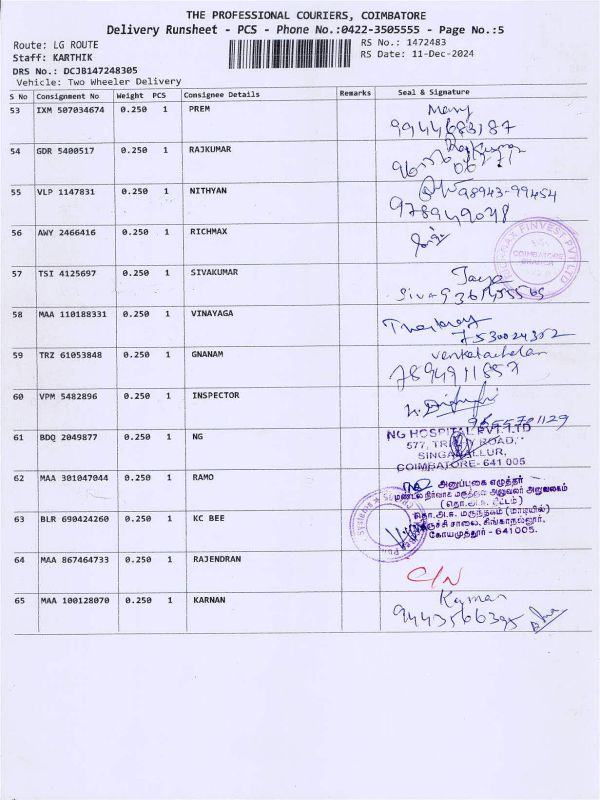 THE PROFESSIONAL COURIERS, COIMBATORE
Delivery Runsheet - PCS - Phone No.:0422-3505555 - Page No.:5
Route: LG ROUTE
RS No.: 1472483
Staff: KARTHIK
RS Date: 11-Dec-2024
DRS No.: DCJB147248305
Vehicle: Two Wheeler Delivery
S No Consignment No Weight PCS Consignee Details Remarks Seal & Signature
53 IXM 507034674 0.250 1 PREM
Mary
9944683187
54 GDR 5400517 0.250 1 RAJKUMAR
Rajkumar
55 VLP 1147831 0.250 1 NITHYAN
98943-99454
9789449048
56 AWY 2466416 0.250 1 RICHMAX
FINVEST PVT LTD
COIMBATORE
BRANCH
57 TSI 4125697 0.250 1 SIVAKUMAR
Siva
58 MAA 110188331 0.250 1 VINAYAGA
7530024352
59 TRZ 61053848 0.250 1 GNANAM
venkatachalam
7894911857
60 VPM 5482896 0.250 1 INSPECTOR
9655701129
61 BDQ 2049877 0.250 1 NG
NG HOSPITAL PVT.LTD
577, ROAD,
SINGANALLUR,
COIMBATORE- 641 005
62 MAA 301047044 0.250 1 RAMO
அனுப்புகை எழுத்தர்
மண்டல நிர்வாக மருத்துவ அலுவலர் அலுவலகம்
(தொ.அ.ஈ. திட்டம்)
63 BLR 690424260 0.250 1 KC BEE
தொ.அ.ஈ. மருந்தகம் (மாடியில்)
திருச்சி சாலை, சிங்காநல்லூர்,
கோயமுத்தூர் - 641005.
Systems
64 MAA 867464733 0.250 1 RAJENDRAN
C/N
65 MAA 100128070 0.250 1 KARNAN
Karnan